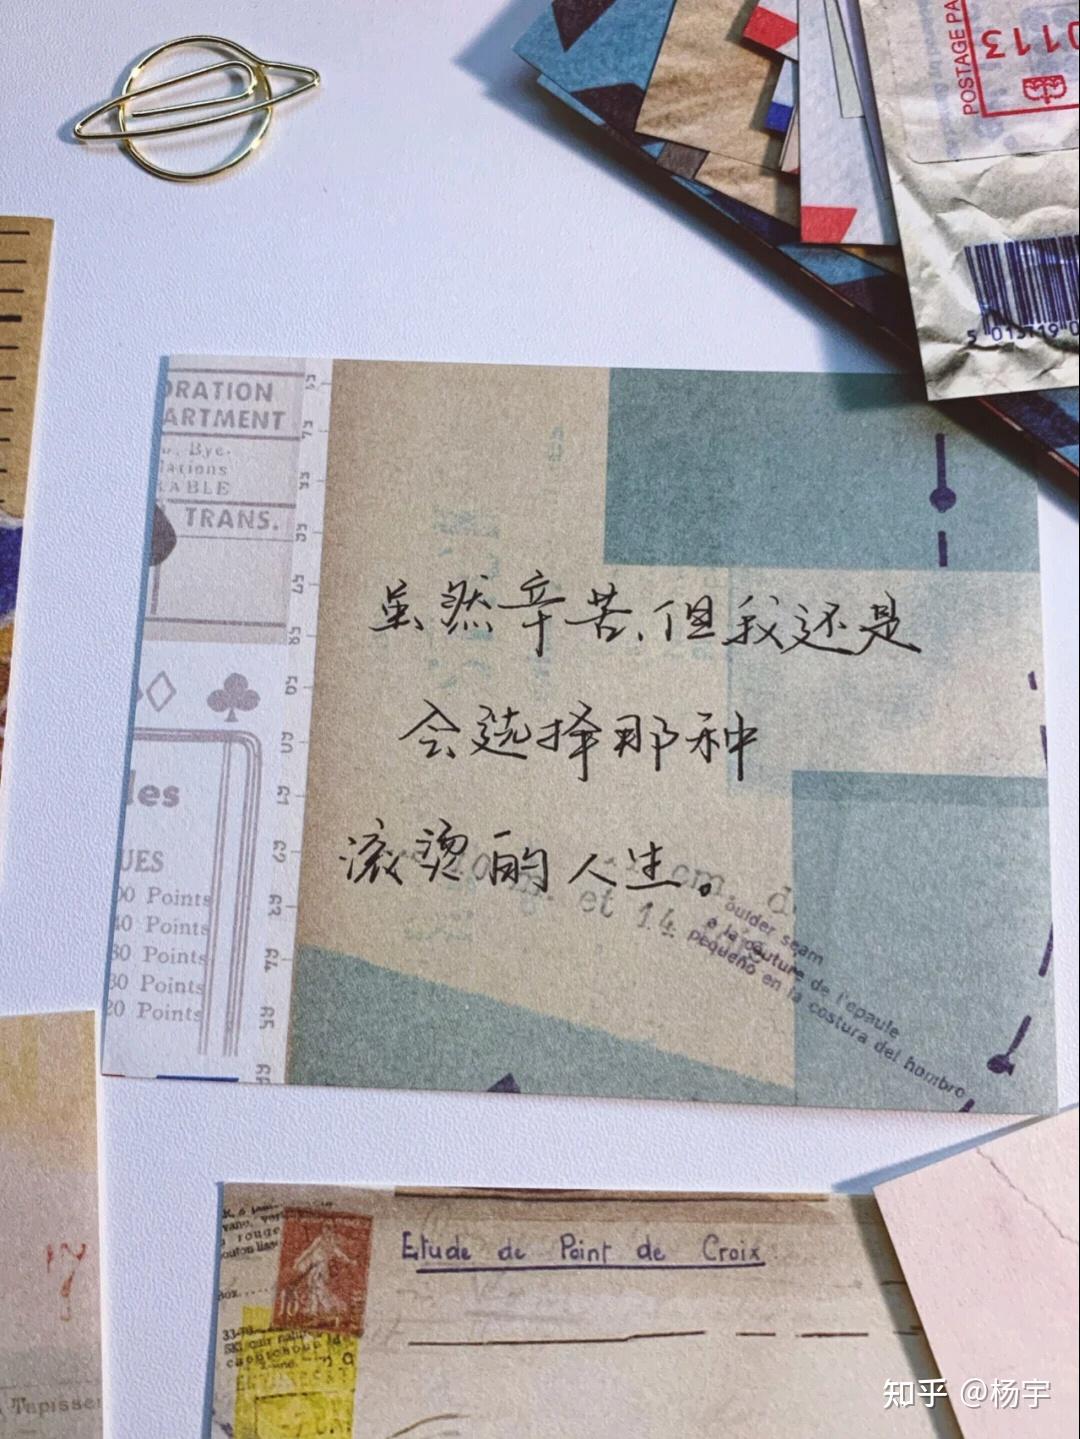 POSTAGE PA
0113
5 013719 0
ORATION
ARTMENT
Bye-
lations
ABLE
TRANS.
虽然辛苦，但我还是
会选择那种
滚烫的人生。
les
UES
00 Points
40 Points
30 Points
30 Points
20 Points
cm. d
et 14.
oulder seam
à la couture de l'epaule
pequeño en la costura del hombro
Etude de Point de Croix
Tapisser
知乎 @杨宇